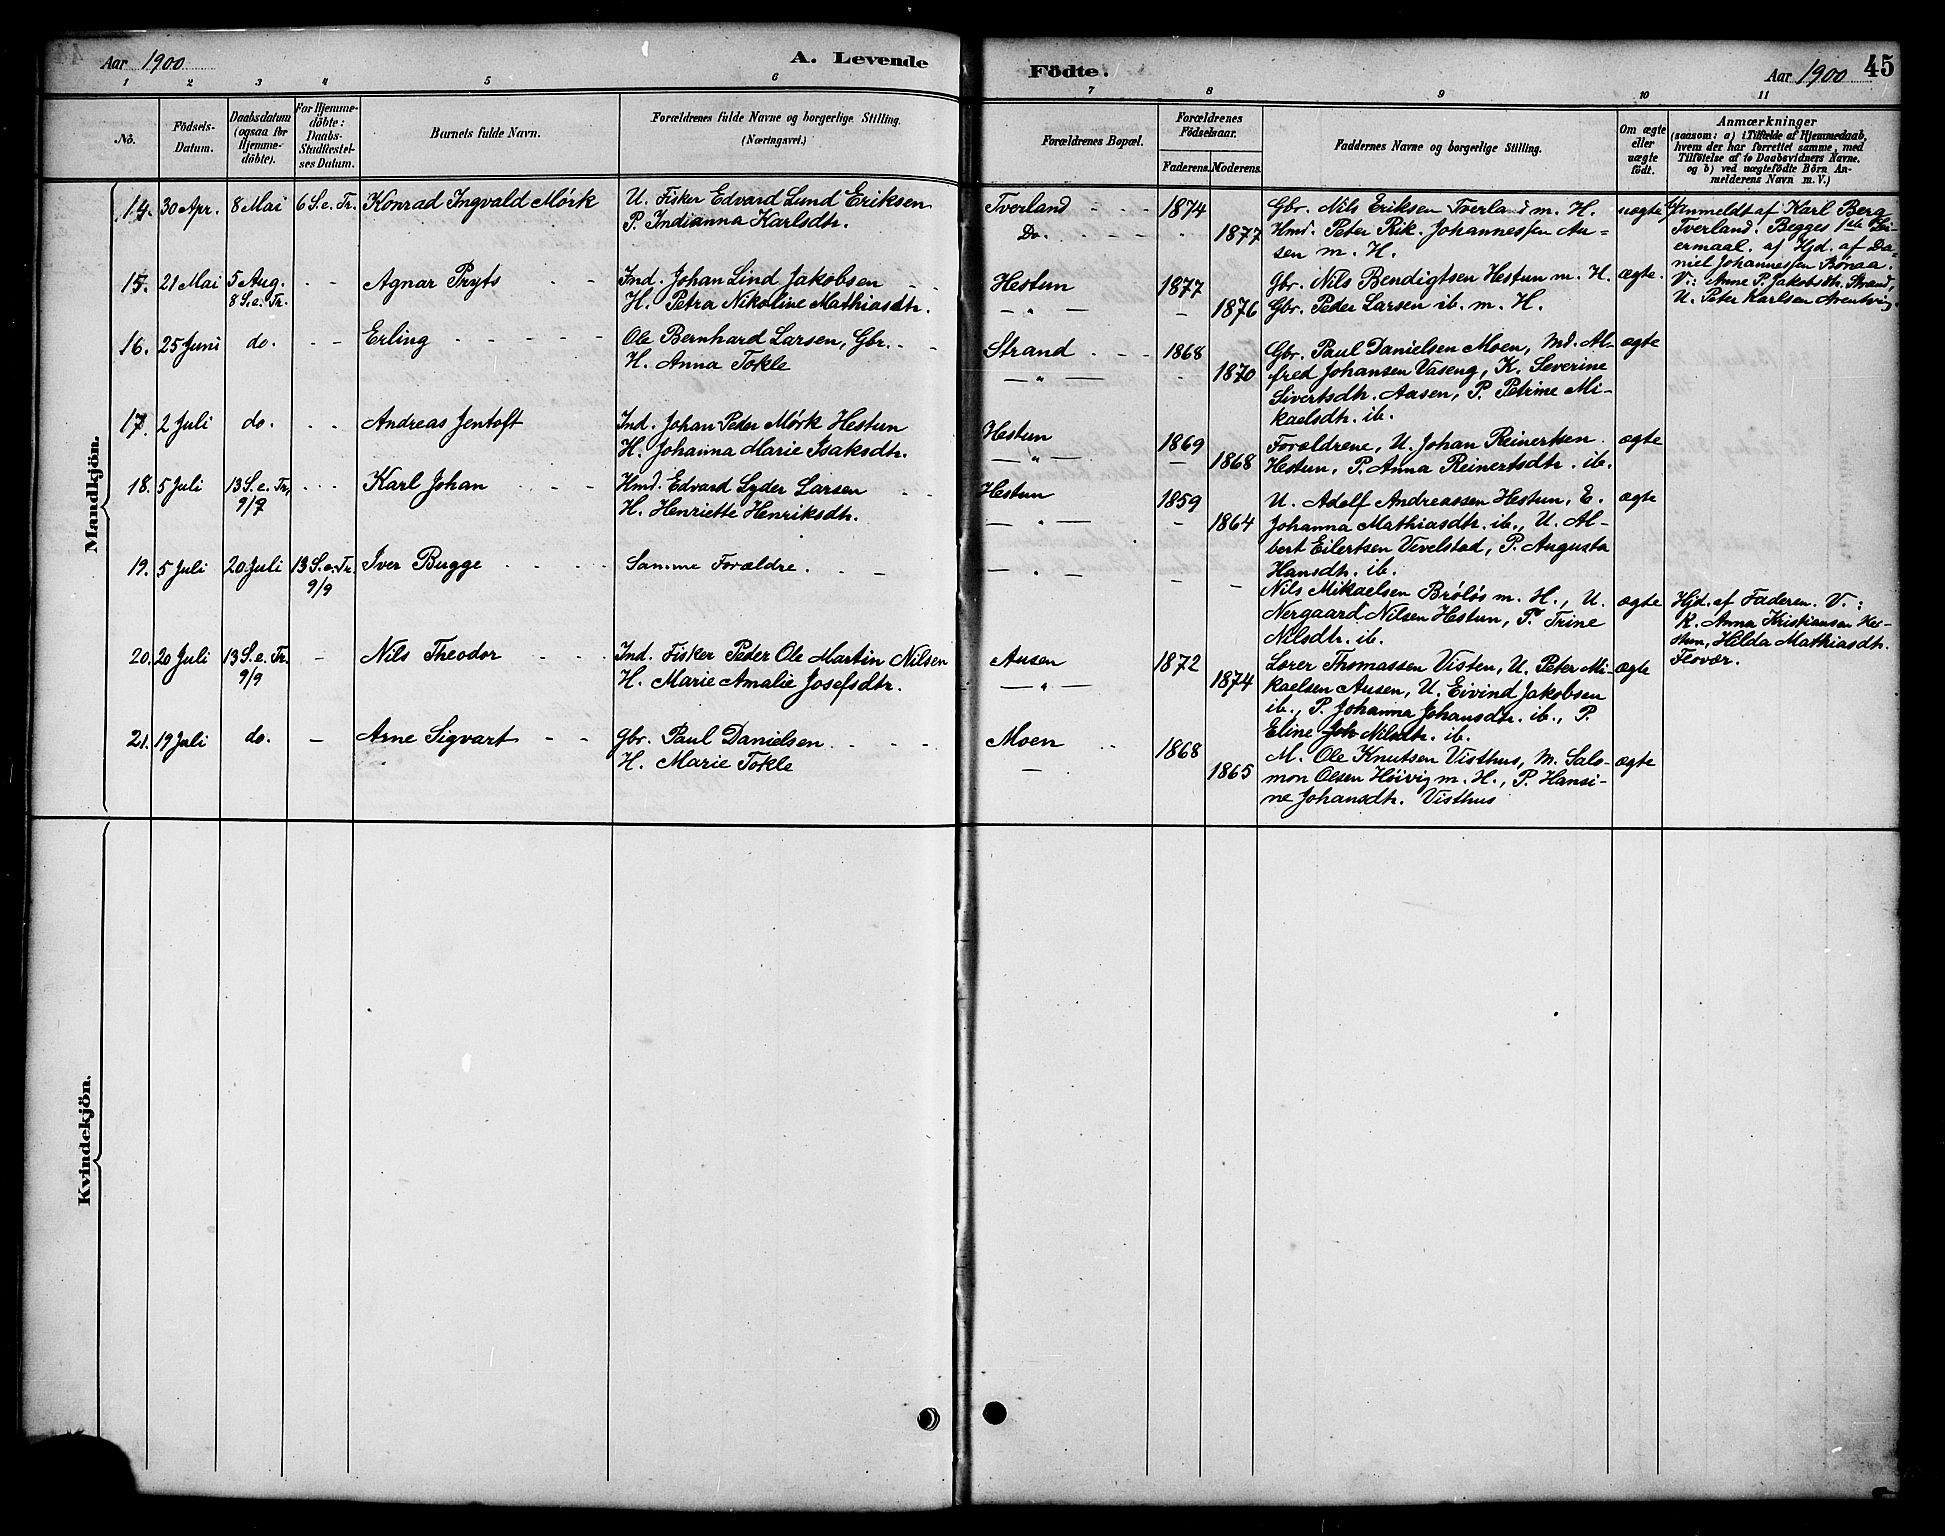 Aar 1900
A. Levende
Födte.
Aar 1900
45
1 2 3 4 5 6 7 8 9 10 11
No.
Födsels-Datum.
Daabsdatum (ogsaa for Hjemme-döbte).
For Hjemme-döbte: Daabs-Stadfæstel-ses Datum.
Barnets fulde Navn.
Forældrenes fulde Navne og borgerlige Stilling.
(Næringsvei.)
Forældrenes Bopæl.
Forældrenes Födselsaar.
Faderens. Moderens.
Faddernes Navne og borgerlige Stilling.
Om ægte eller uægte födt.
Anmærkninger
(saasom: a) i Tilfælde af Hjemmedaab,
hvem der har forrettet samme, med
Tilföielse af to Daabsvidners Navne.
og b) ved uægtefödte Börn An-
melderens Navn m. V.)
Mandkjön.
14. 30 Apr. 8 Mai 6 S. e. Tr. Konrad Ingvald Mörk U. Fisker Edvard Lund Eriksen Tverland 1874 Gbr. Nils Eriksen Tverland m. H. uægte Anmeldt af Karl Berg
P. Indianna Karlsdtr. Do. 1877 Hmd. Peter Rik. Johannessen Au- Tverland. Begges 1ste Lei-
sen m. H. ermaal. af Hjd. af Da-
niel Johannessen Bønaa.
15. 21 Mai 5 Aug. Agnar Pryts Ind. Johan Lind Jakobsen Hestun 1877 Gbr. Nils Bendigtsen Hestun m. H. ægte. V: Anne P. Jakobsdtr. Strand,
8 S. e. Tr. H. Petra Nikoline Mathiasdtr. — " — 1876 Gbr. Peder Larsen ib. m. H. U. Peter Karlsen
16. 25 Juni do. Erling Ole Bernhard Larsen, Gbr. Strand 1868 Gbr. Paul Danielsen Moen, Md. Al- ægte
H. Anna Tokle — " — 1870 fred Johansen Vaseng, K. Severine
Sivertsdtr. Aasen, P. Petrine Mi-
kaelsdtr. ib.
17. 2 Juli do. Andreas Jentoft Ind. Johan Peder Mørk Hestun Hestun 1869 Forældrene, U. Johan Reinertsen ægte
H. Johanna Marie Isaksdtr. — " — 1868 Hestun, P. Anna Reinertsdtr. ib.
18. 5 Juli 13 S. e. Tr. Karl Johan Hmd. Edvard Lyder Larsen Hestun 1859 U. Adolf Andreassen Hestun, E. ægte
9/9 H. Henriette Henriksdtr. — " — 1864 Johanna Mathiasdtr. ib., U. Al-
bert Eilertsen Vevelstad, P. Augusta
Hansdtr. ib.
19. 5 Juli 20 Juli 13 S. e. Tr. Iver Bugge Samme Forældre. — " — — —
9/9 Nils Mikaelsen Brøløs m. H., U. ægte Hjd. af Faderen. V.:
Nergaard Nilsen Hestun, P. Trine K. Anna Kristiansen He-
Nilsdtr. ib. stun, Hilda Mathiasdtr.
Flovær.
20. 20 Juli 13 S. e. Tr. — Nils Theodor Ind. Fisker Peder Ole Martin Nilsen Ausen 1872 Lorer Thomassen Visten, U. Peter Mi- ægte
9/9 H. Marie Amalie Josefsdtr. — " — 1874 kaelsen Ausen, U. Eivind Jakobsen
ib., P. Johanna Johansdtr. ib., P.
Eline Joh Nilsdtr. ib.
21. 19 Juli do. — Arne Sigvart Gbr. Paul Danielsen Moen 1868 M. Ole Knutsen Visthus, M. Salo- ægte
H. Marie Tokle — 1865 mon Olsen Høivig m. H., P. Hansi-
ne Johansdtr. Visthus
Kvindekjön.